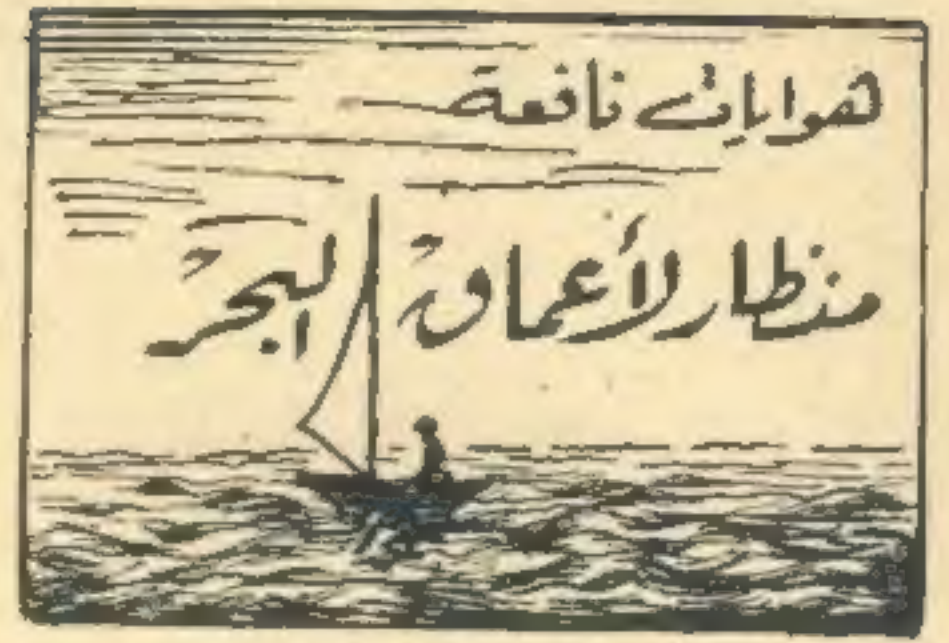 هوايات نافعة
منظار لأعماق البحر